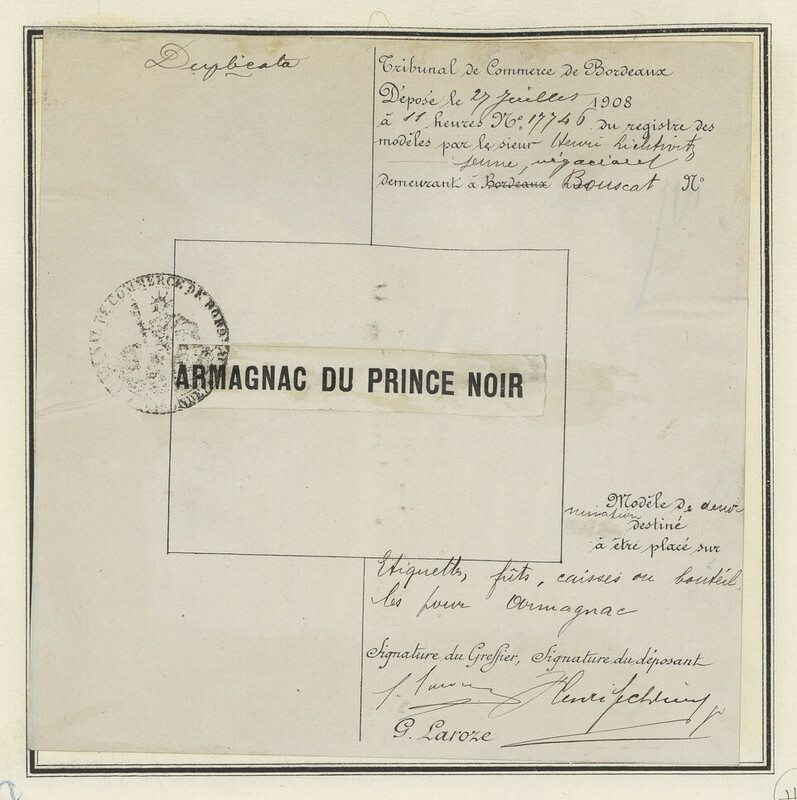 Duplicata
Tribunal de Commerce de Bordeaux
Déposé le 27 Juillet 1908
à 11 heures Nº 17746 du registre des
modèles par le sieur Henri Lichtwitz
jeune, négociant
demeurant à Bordeaux Bouscat Nº
TRIBUNAL DE COMMERCE DE BORDEAUX
ARMAGNAC DU PRINCE NOIR
Modèle de déno
mination
destiné
à être placé sur
Etiquettes, fûts, caisses ou bouteil
les pour Armagnac
Signature du Greffier, Signature du déposant
G. Laroze